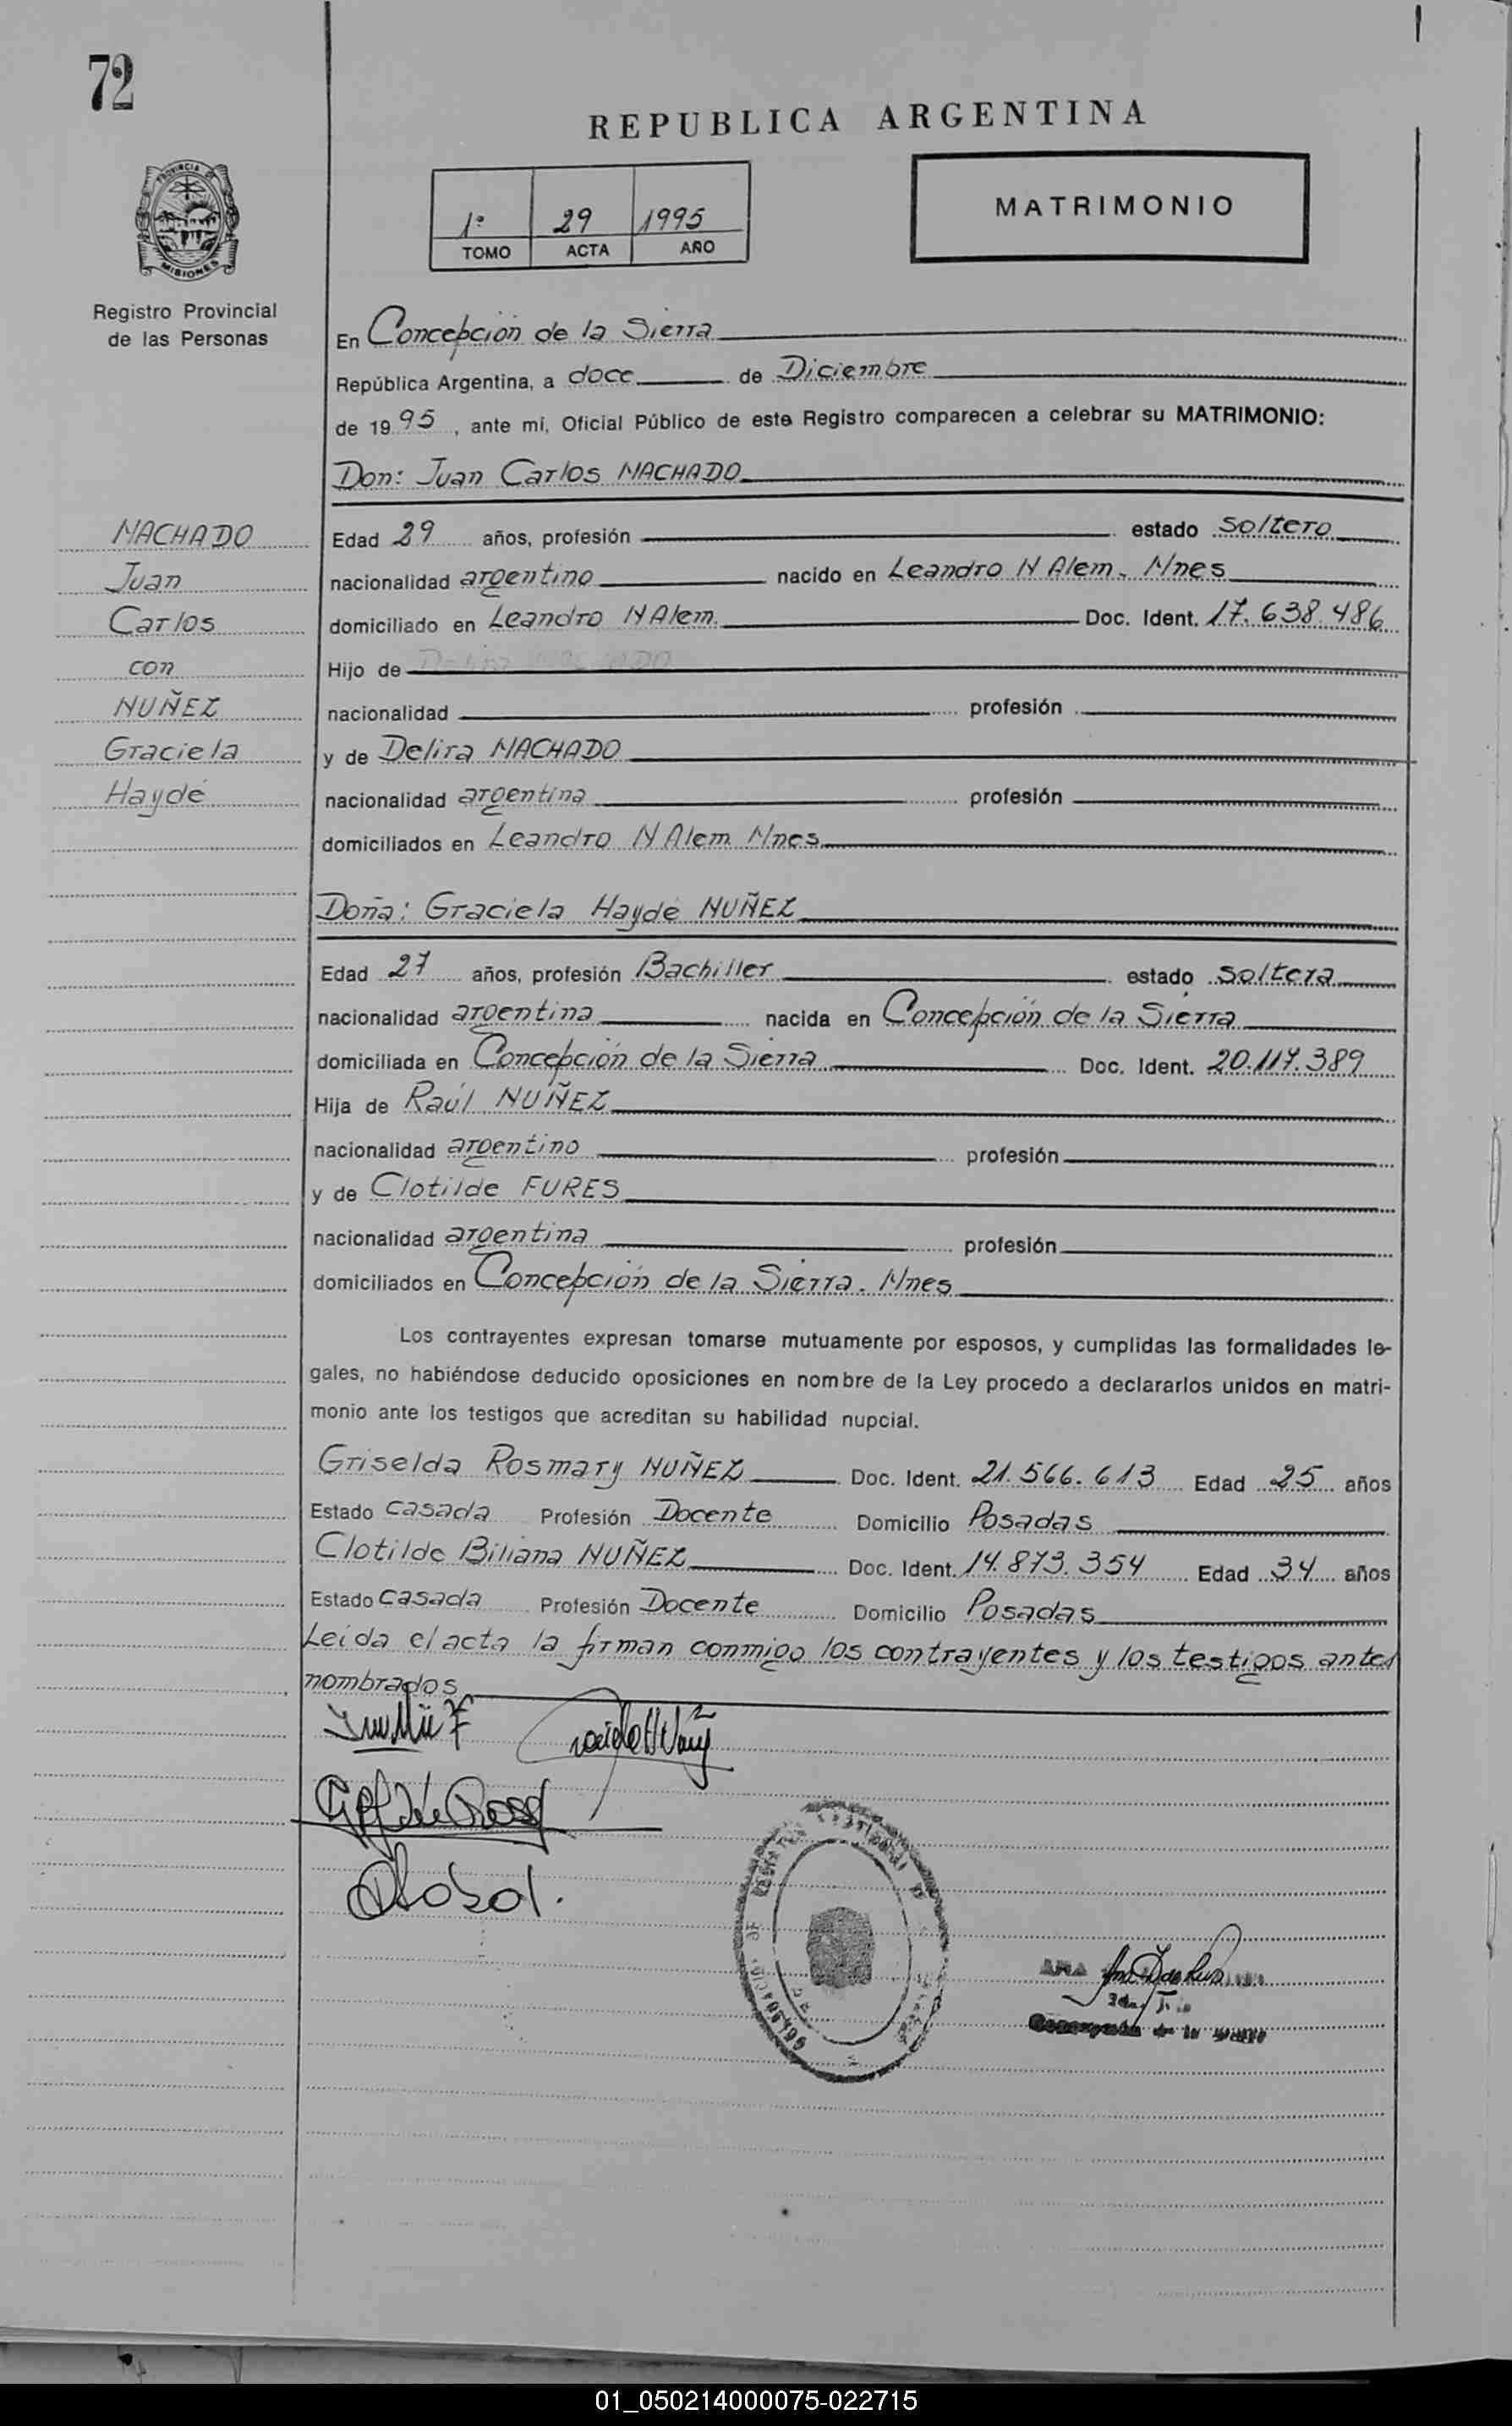 72
REPUBLICA ARGENTINA
PROVINCIA DE
MISIONES
Registro Provincial
de las Personas
1º 29 1995
TOMO ACTA AÑO
MATRIMONIO
En Concepción de la Sierra
República Argentina, a doce de Diciembre
de 1995, ante mí, Oficial Público de este Registro comparecen a celebrar su MATRIMONIO:
Don: Juan Carlos MACHADO
MACHADO
Juan
Carlos
con
NUÑEZ
Graciela
Haydé
Edad 29 años, profesión estado soltero
nacionalidad argentino nacido en Leandro N Alem. Mnes
domiciliado en Leandro N Alem. Doc. Ident. 17.638.486
Hijo de
nacionalidad profesión
y de Delira MACHADO
nacionalidad argentina profesión
domiciliados en Leandro N Alem Mnes
Doña: Graciela Haydé NUÑEZ
Edad 27 años, profesión Bachiller estado soltera
nacionalidad argentina nacida en Concepción de la Sierra
domiciliada en Concepción de la Sierra Doc. Ident. 20.117.389
Hija de Raúl NUÑEZ
nacionalidad argentino profesión
y de Clotilde FURES
nacionalidad argentina profesión
domiciliados en Concepción de la Sierra. Mnes
Los contrayentes expresan tomarse mutuamente por esposos, y cumplidas las formalidades le-
gales, no habiéndose deducido oposiciones en nombre de la Ley procedo a declararlos unidos en matri-
monio ante los testigos que acreditan su habilidad nupcial.
Griselda Rosmary NUÑEZ Doc. Ident. 21.566.613 Edad 25 años
Estado casada Profesión Docente Domicilio Posadas
Clotilde Biliana NUÑEZ Doc. Ident. 14.873.354 Edad 34 años
Estado Casada Profesión Docente Domicilio Posadas
Leída el acta la firman conmigo los contrayentes y los testigos antes
nombrados
ANA
Concepción de la Sierra
01_050214000075-022715